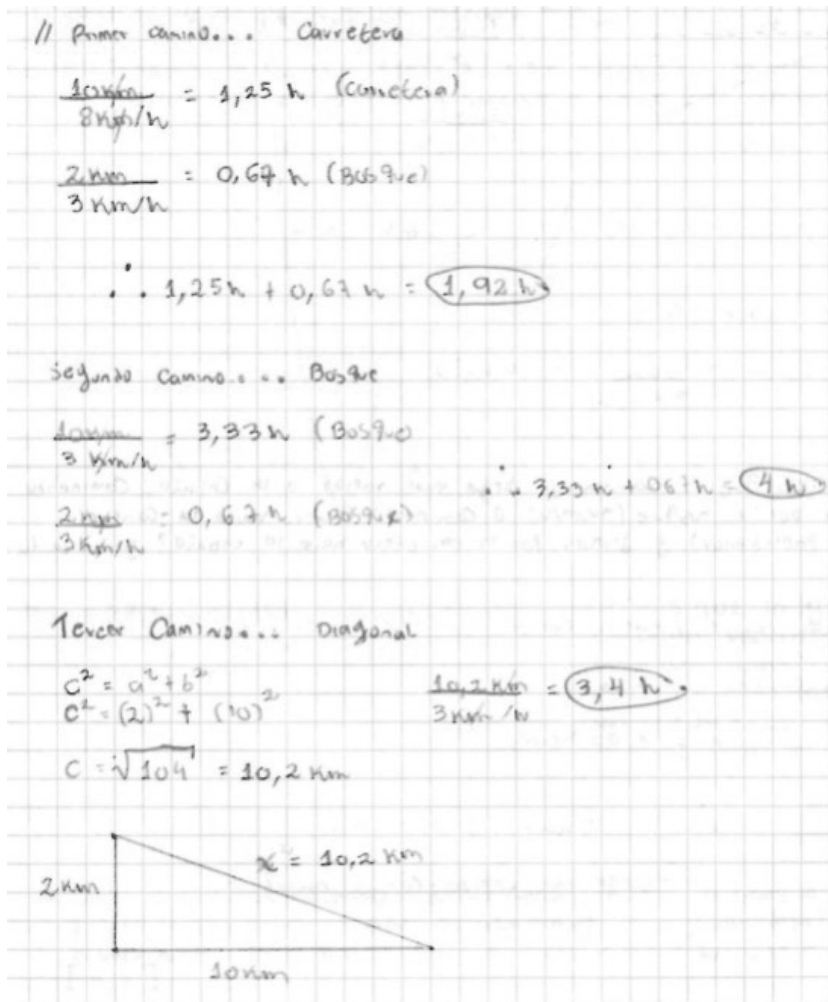 // Primer camino... Carretera
10 km / 8 km/h = 1,25 h (carretera)
2 km / 3 km/h = 0,67 h (Bosque)
∴ 1,25 h + 0,67 h = 1,92 h
Segundo Camino... Bosque
10 km / 3 km/h = 3,33 h (Bosque)
∴ 3,33 h + 0,67 h = 4 h
2 km / 3 km/h = 0,67 h (Bosque)
Tercer Camino... Diagonal
c² = a² + b²
c² = (2)² + (10)²
10,2 km / 3 km/h = 3,4 h
C = √104 = 10,2 km
x = 10,2 km
2 km
10 km